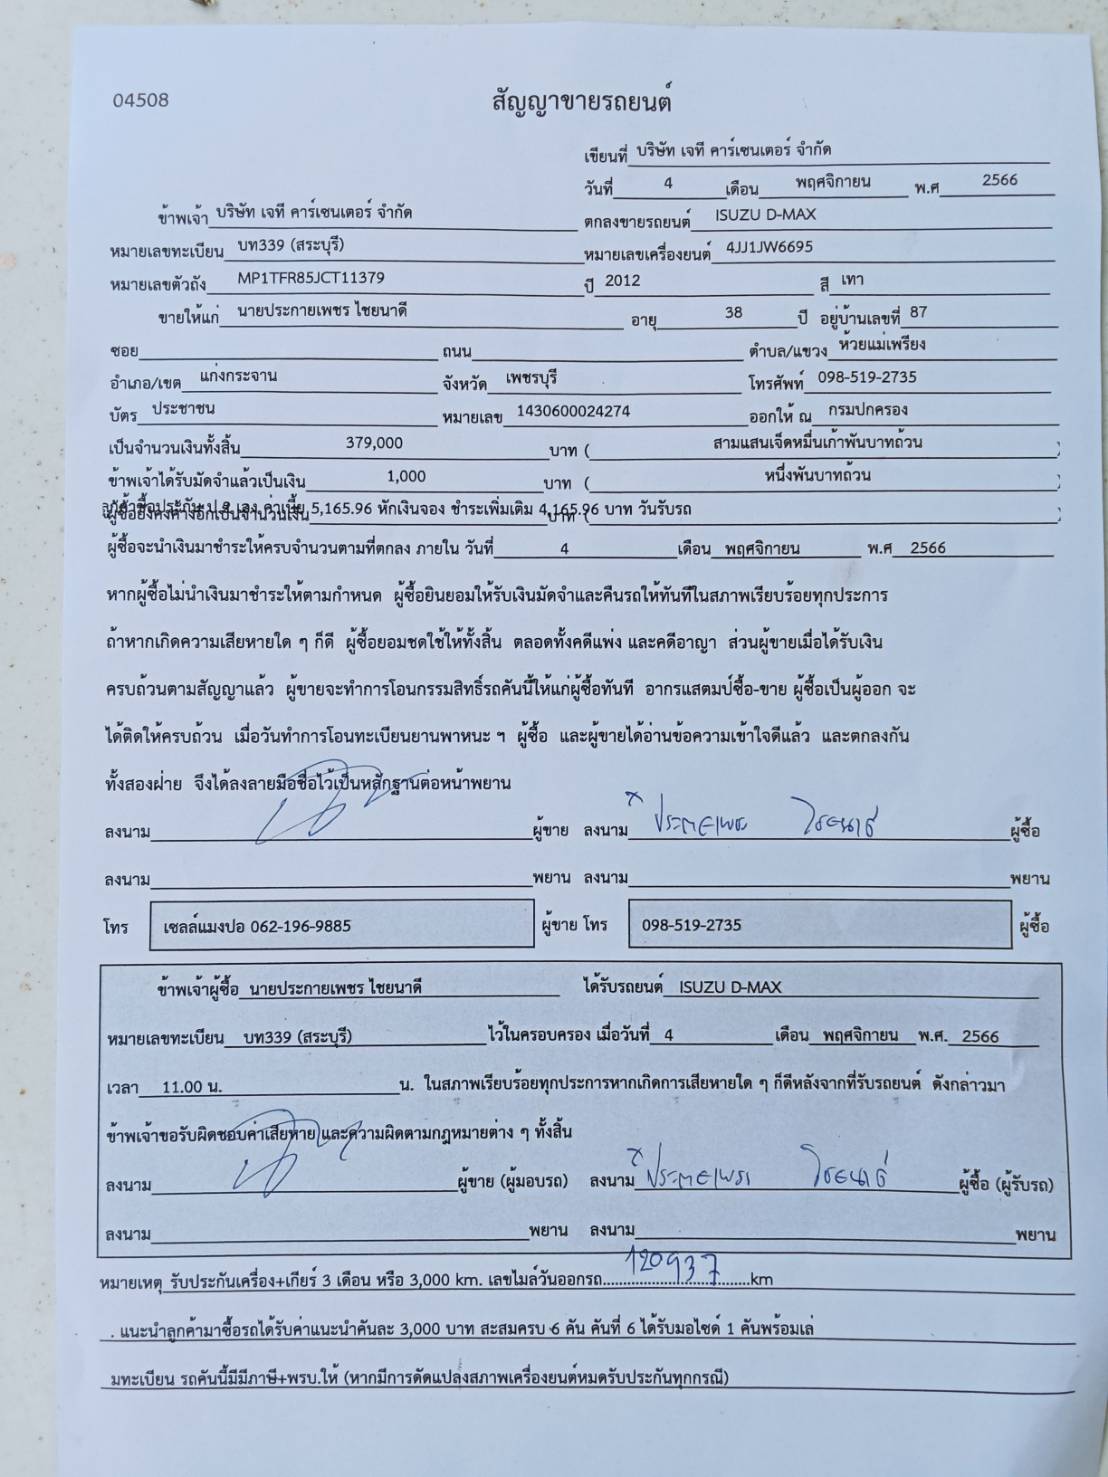 04508
สัญญาขายรถยนต์
เขียนที่ บริษัท เจที คาร์เซนเตอร์ จำกัด
วันที่ 4 เดือน พฤศจิกายน พ.ศ 2566
ข้าพเจ้า บริษัท เจที คาร์เซนเตอร์ จำกัด ตกลงขายรถยนต์ ISUZU D-MAX
หมายเลขทะเบียน บท339 (สระบุรี) หมายเลขเครื่องยนต์ 4JJ1JW6695
หมายเลขตัวถัง MP1TFR85JCT11379 ปี 2012 สี เทา
ขายให้แก่ นายประกายเพชร ไชยนาดี อายุ 38 ปี อยู่บ้านเลขที่ 87
ซอย ถนน ตำบล/แขวง ห้วยแม่เพรียง
อำเภอ/เขต แก่งกระจาน จังหวัด เพชรบุรี โทรศัพท์ 098-519-2735
บัตร ประชาชน หมายเลข 1430600024274 ออกให้ ณ กรมปกครอง
เป็นจำนวนเงินทั้งสิ้น 379,000 บาท ( สามแสนเจ็ดหมื่นเก้าพันบาทถ้วน )
ข้าพเจ้าได้รับมัดจำแล้วเป็นเงิน 1,000 บาท ( หนึ่งพันบาทถ้วน )
ผู้ซื้อยังคงค้างอีกเป็นจำนวนเงิน บาท ( )
ลูกค้าซื้อประกัน ป.2 เอง ค่าเบี้ย 5,165.96 หักเงินจอง ชำระเพิ่มเติม 4,165.96 บาท วันรับรถ
ผู้ซื้อจะนำเงินมาชำระให้ครบจำนวนตามที่ตกลง ภายใน วันที่ 4 เดือน พฤศจิกายน พ.ศ 2566
หากผู้ซื้อไม่นำเงินมาชำระให้ตามกำหนด ผู้ซื้อยินยอมให้รับเงินมัดจำและคืนรถให้ทันทีในสภาพเรียบร้อยทุกประการ
ถ้าหากเกิดความเสียหายใด ๆ ก็ดี ผู้ซื้อยอมชดใช้ให้ทั้งสิ้น ตลอดทั้งคดีแพ่ง และคดีอาญา ส่วนผู้ขายเมื่อได้รับเงิน
ครบถ้วนตามสัญญาแล้ว ผู้ขายจะทำการโอนกรรมสิทธิ์รถคันนี้ให้แก่ผู้ซื้อทันที อากรแสตมป์ซื้อ-ขาย ผู้ซื้อเป็นผู้ออก จะ
ได้ติดให้ครบถ้วน เมื่อวันทำการโอนทะเบียนยานพาหนะ ฯ ผู้ซื้อ และผู้ขายได้อ่านข้อความเข้าใจดีแล้ว และตกลงกัน
ทั้งสองฝ่าย จึงได้ลงลายมือชื่อไว้เป็นหลักฐานต่อหน้าพยาน
ลงนาม ผู้ขาย ลงนาม x ประกายเพชร ไชยนาดี ผู้ซื้อ
ลงนาม พยาน ลงนาม พยาน
โทร เซลล์แมงปอ 062-196-9885 ผู้ขาย โทร 098-519-2735 ผู้ซื้อ
ข้าพเจ้าผู้ซื้อ นายประกายเพชร ไชยนาดี ได้รับรถยนต์ ISUZU D-MAX
หมายเลขทะเบียน บท339 (สระบุรี) ไว้ในครอบครอง เมื่อวันที่ 4 เดือน พฤศจิกายน พ.ศ. 2566
เวลา 11.00 น. น. ในสภาพเรียบร้อยทุกประการหากเกิดการเสียหายใด ๆ ก็ดีหลังจากที่รับรถยนต์ ดังกล่าวมา
ข้าพเจ้าขอรับผิดชอบค่าเสียหาย และความผิดตามกฎหมายต่าง ๆ ทั้งสิ้น
ลงนาม ผู้ขาย (ผู้มอบรถ) ลงนาม x ประกายเพชร ไชยนาดี ผู้ซื้อ (ผู้รับรถ)
ลงนาม พยาน ลงนาม พยาน
หมายเหตุ รับประกันเครื่อง+เกียร์ 3 เดือน หรือ 3,000 km. เลขไมล์วันออกรถ 120937 km
. แนะนำลูกค้ามาซื้อรถได้รับค่าแนะนำคันละ 3,000 บาท สะสมครบ 6 คัน คันที่ 6 ได้รับมอไซด์ 1 คันพร้อมเล่
มทะเบียน รถคันนี้มีมีภาษี+พรบ.ให้ (หากมีการดัดแปลงสภาพเครื่องยนต์หมดรับประกันทุกกรณี)